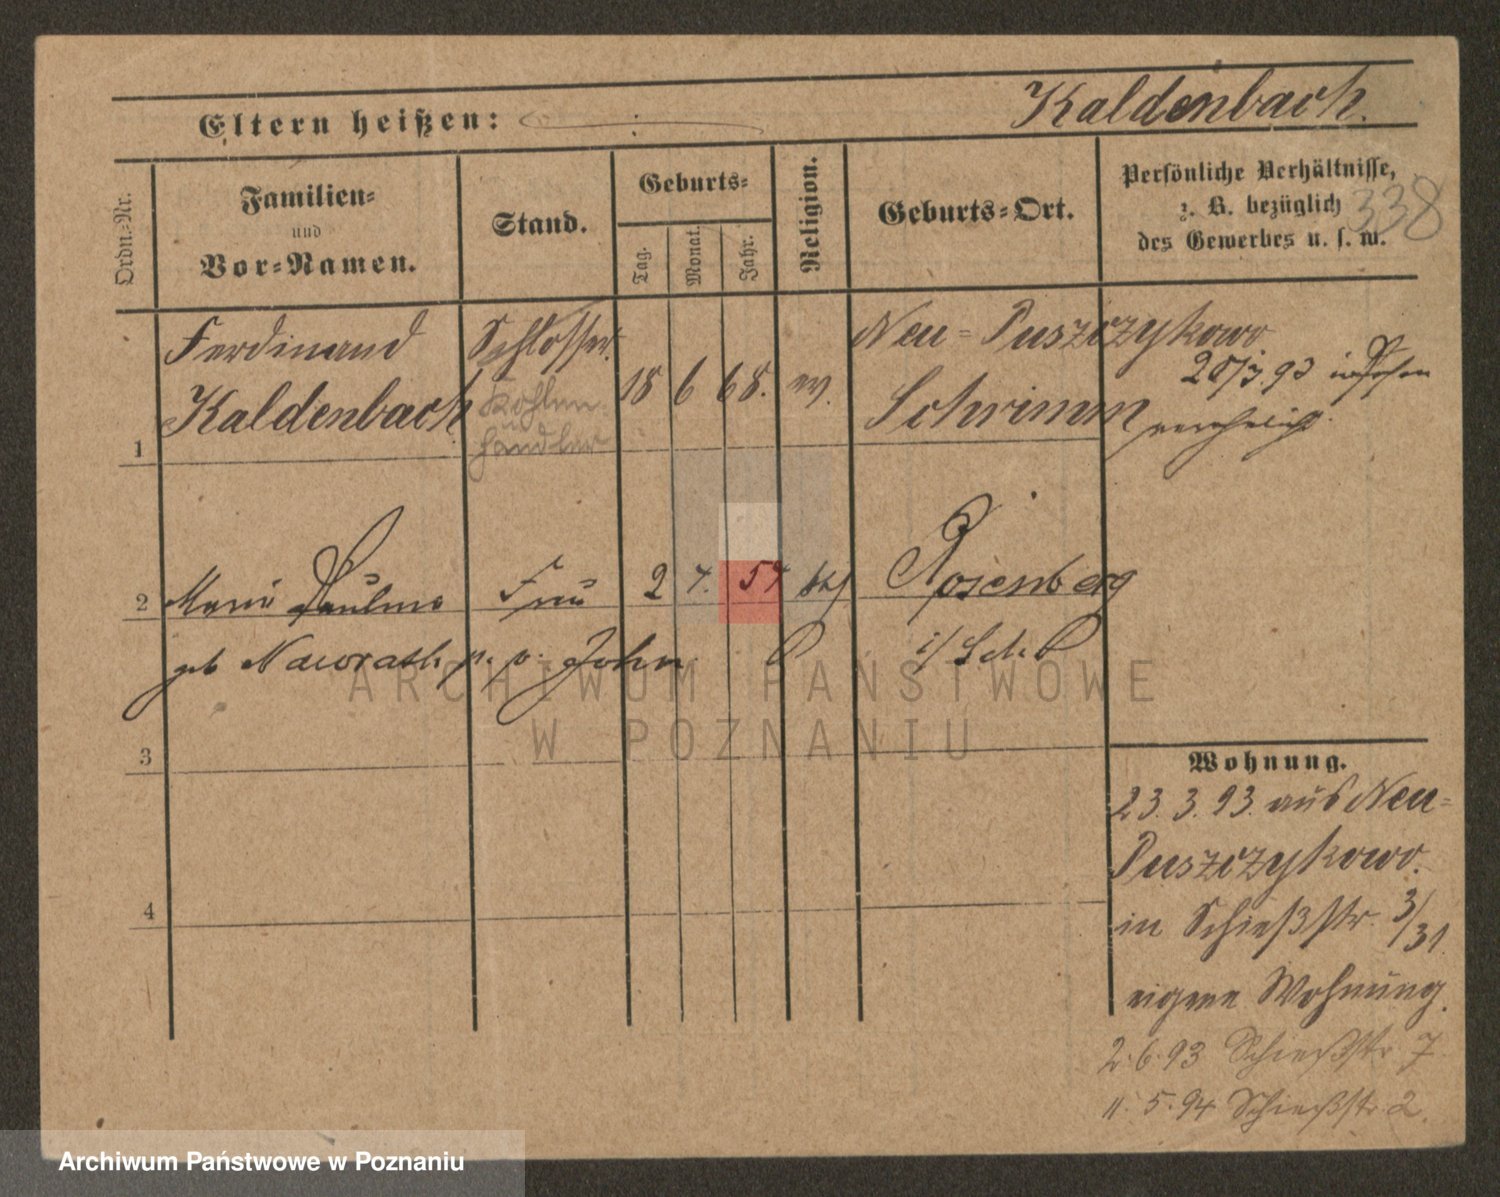 Kaldenbach.
Eltern heißen:
338
Ordn.-Nr.
Familien-
und
Vor-Namen.
Stand.
Geburts-
Tag.
Monat.
Jahr.
Religion.
Geburts-Ort.
Persönliche Verhältnisse,
z. B. bezüglich
des Gewerbes u. s. w.
1
Ferdinand
Kaldenbach
Schlosser.
Kohlen-
händler
18 6 68. ev.
Neu-Puszczykowo
Schrimm
in Posen
verehelicht.
2
Marie Pauline
geb Nawrath
Frau
John
2 4. 54 kth
Rosenberg
3
4
Wohnung.
23.3.93. aus Neu-
Puszczykowo.
in Schießstr. 3/31
eigene Wohnung.
2.6.93 Schießstr 7.
11.5.94 Schießstr 2.
ARCHIWUM PAŃSTWOWE
W POZNANIU
Archiwum Państwowe w Poznaniu